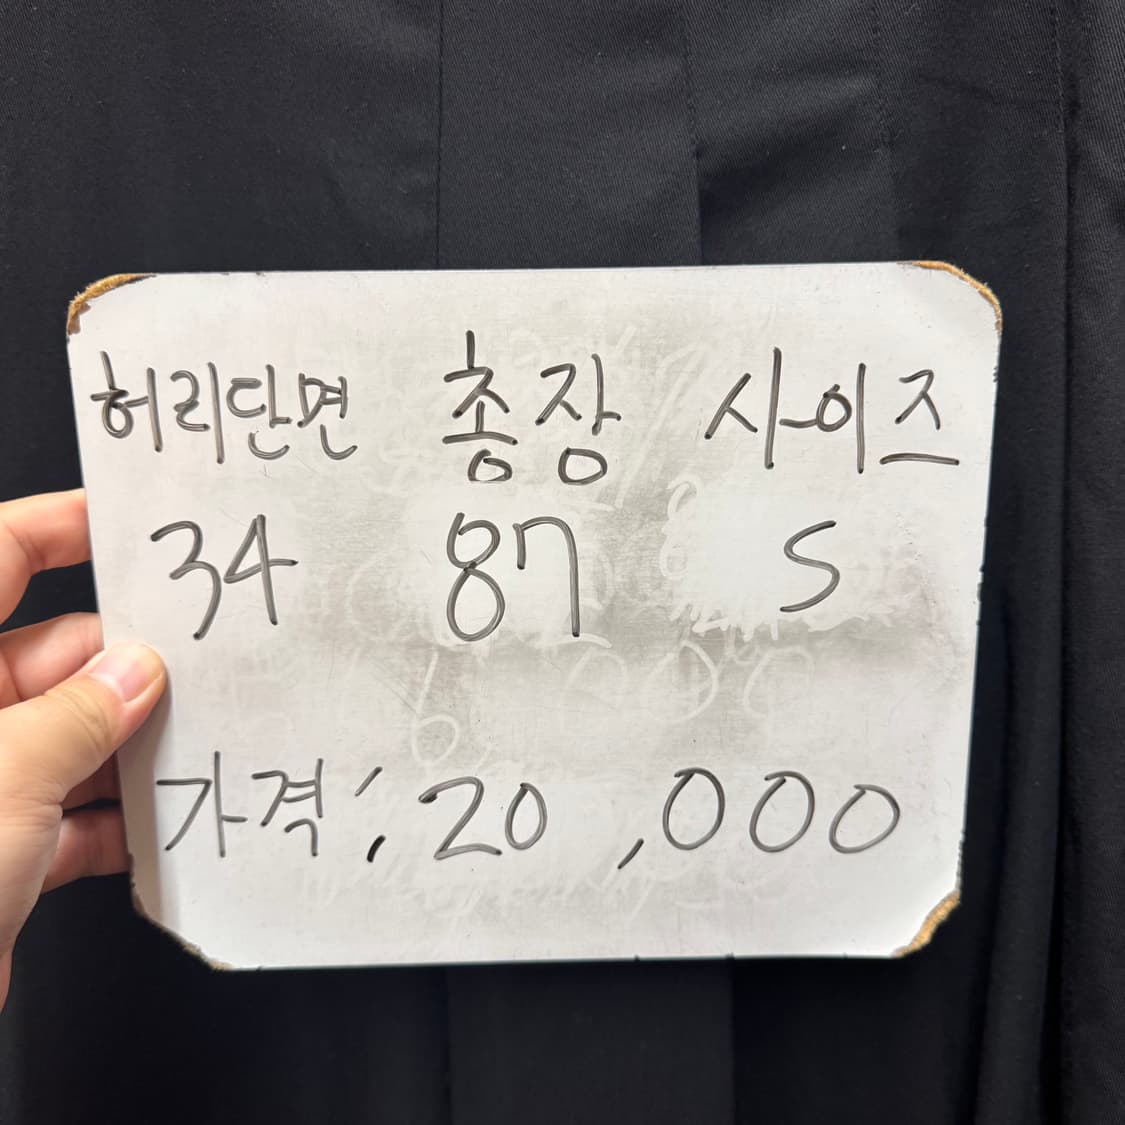 허리단면 총장 사이즈
34 87 S
가격: 20,000